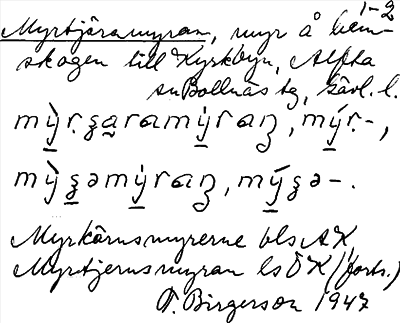 1-2
Myrtjäramyran, myr å hem-
skogen till Kyrkbyn, Alfta
sn Bollnäs tg, Gävl. l.
mỳṛʂa̰ramýraɲ, mýṛ-,
mỳʂəmýraɲ, mýʂə-.
Myrkärnsmyrerne bls AK,
Myrtjernsmyran ls ÖK (forts.)
F. Birgerson 1947